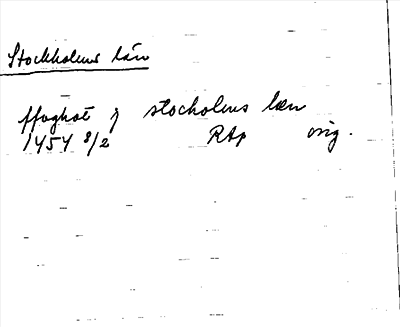 Stockholms län
ffoghot j stocholms læn
1454 8/2 RAp orig.